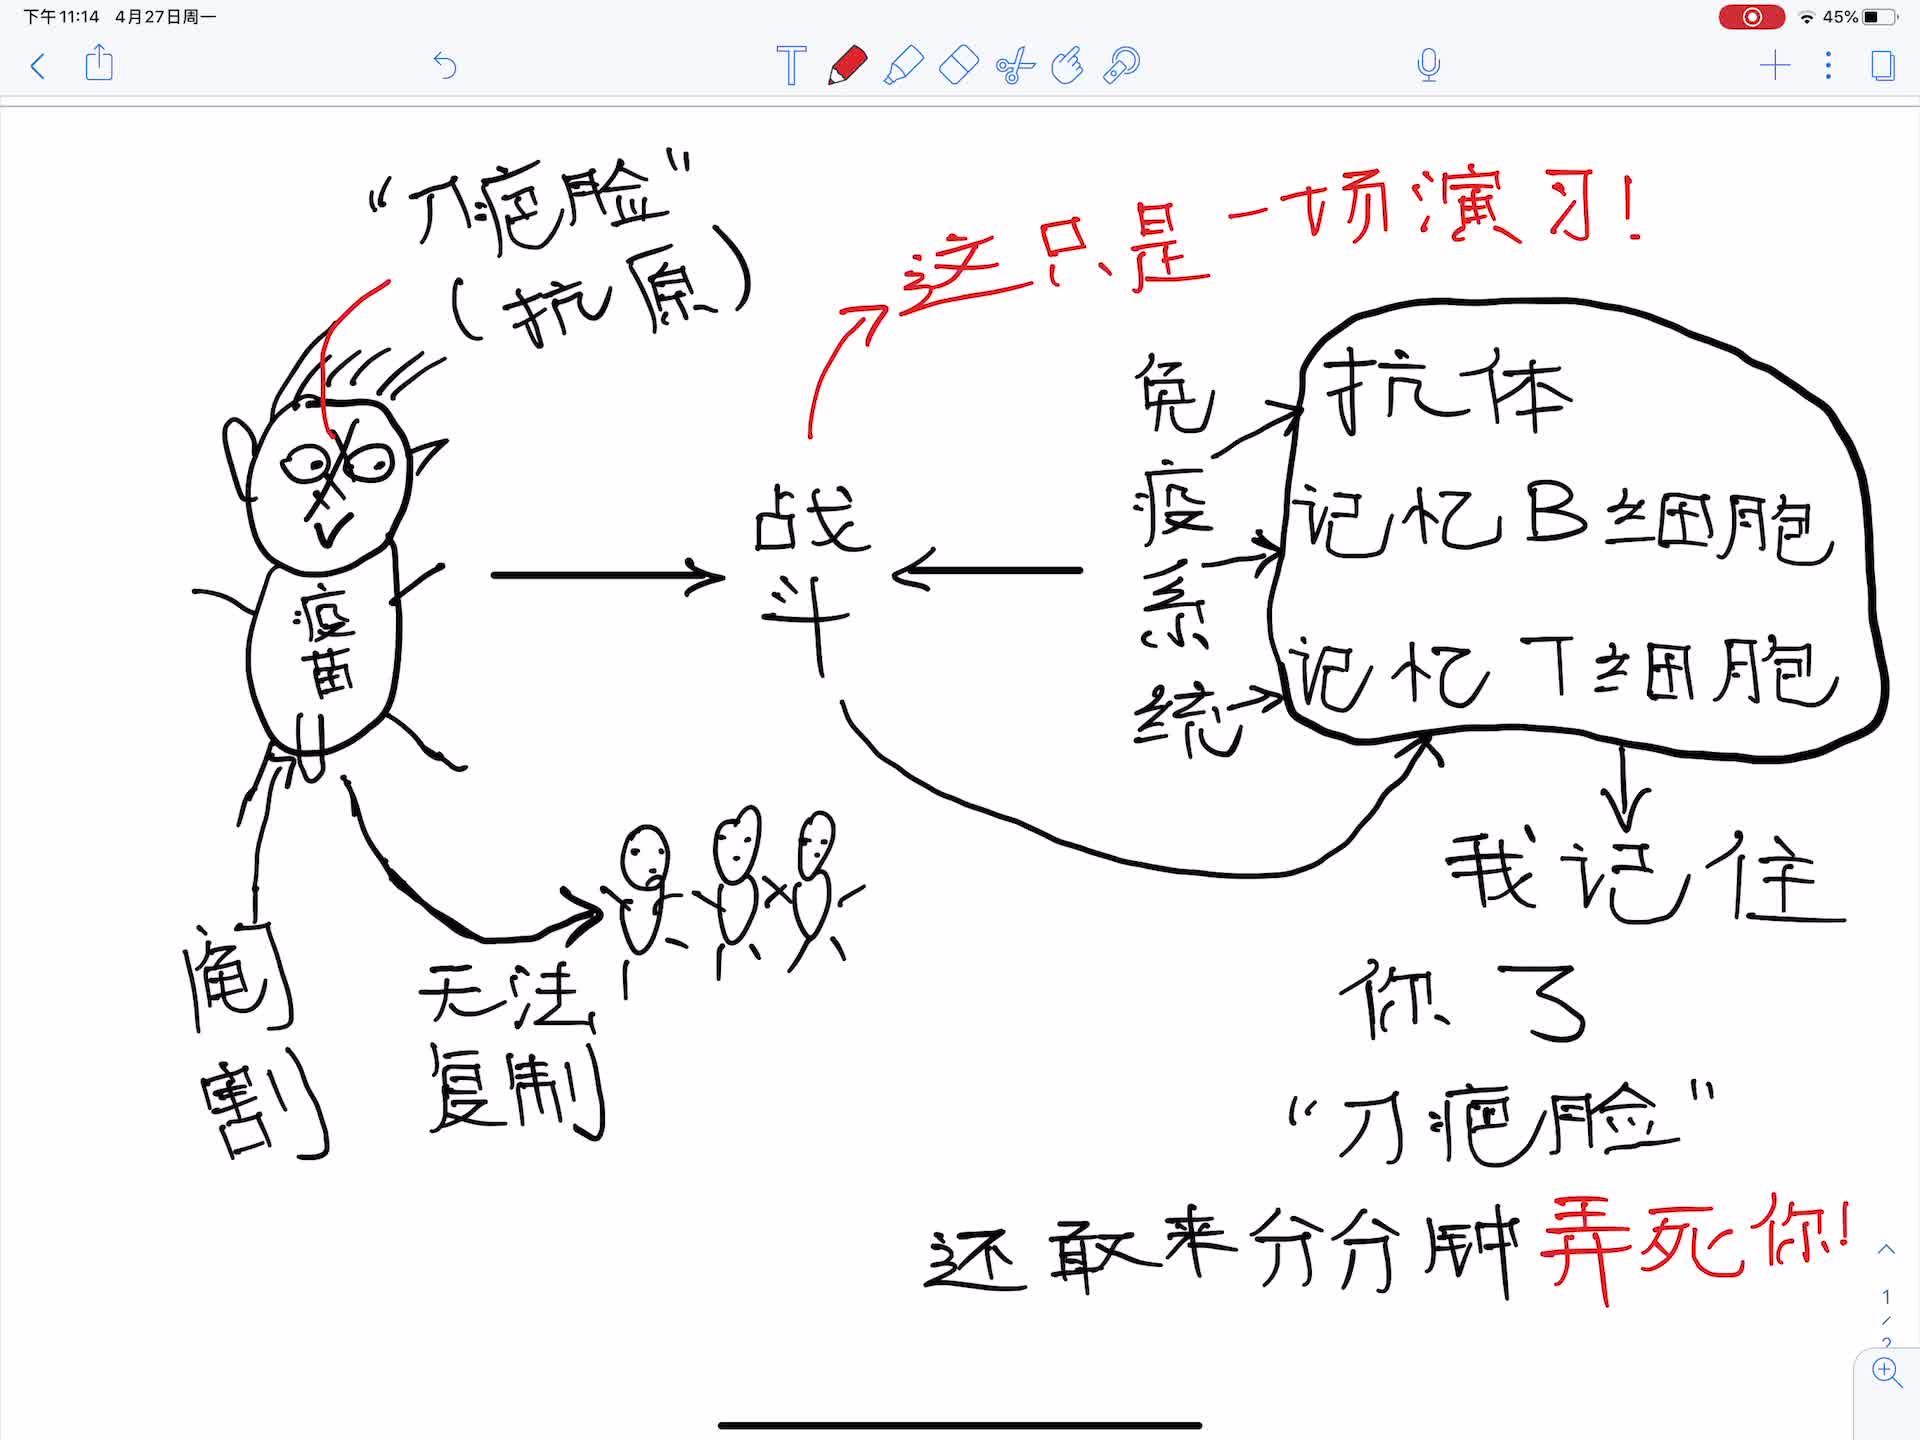 下午11:14 4月27日周一
45%
“刀疤脸”
(抗原)
这只是一场演习!
疫苗
战斗
免疫系统
抗体
记忆B细胞
记忆T细胞
阉割
无法
复制
我记住
你了
“刀疤脸”
还敢来分分钟弄死你!
1
/
2